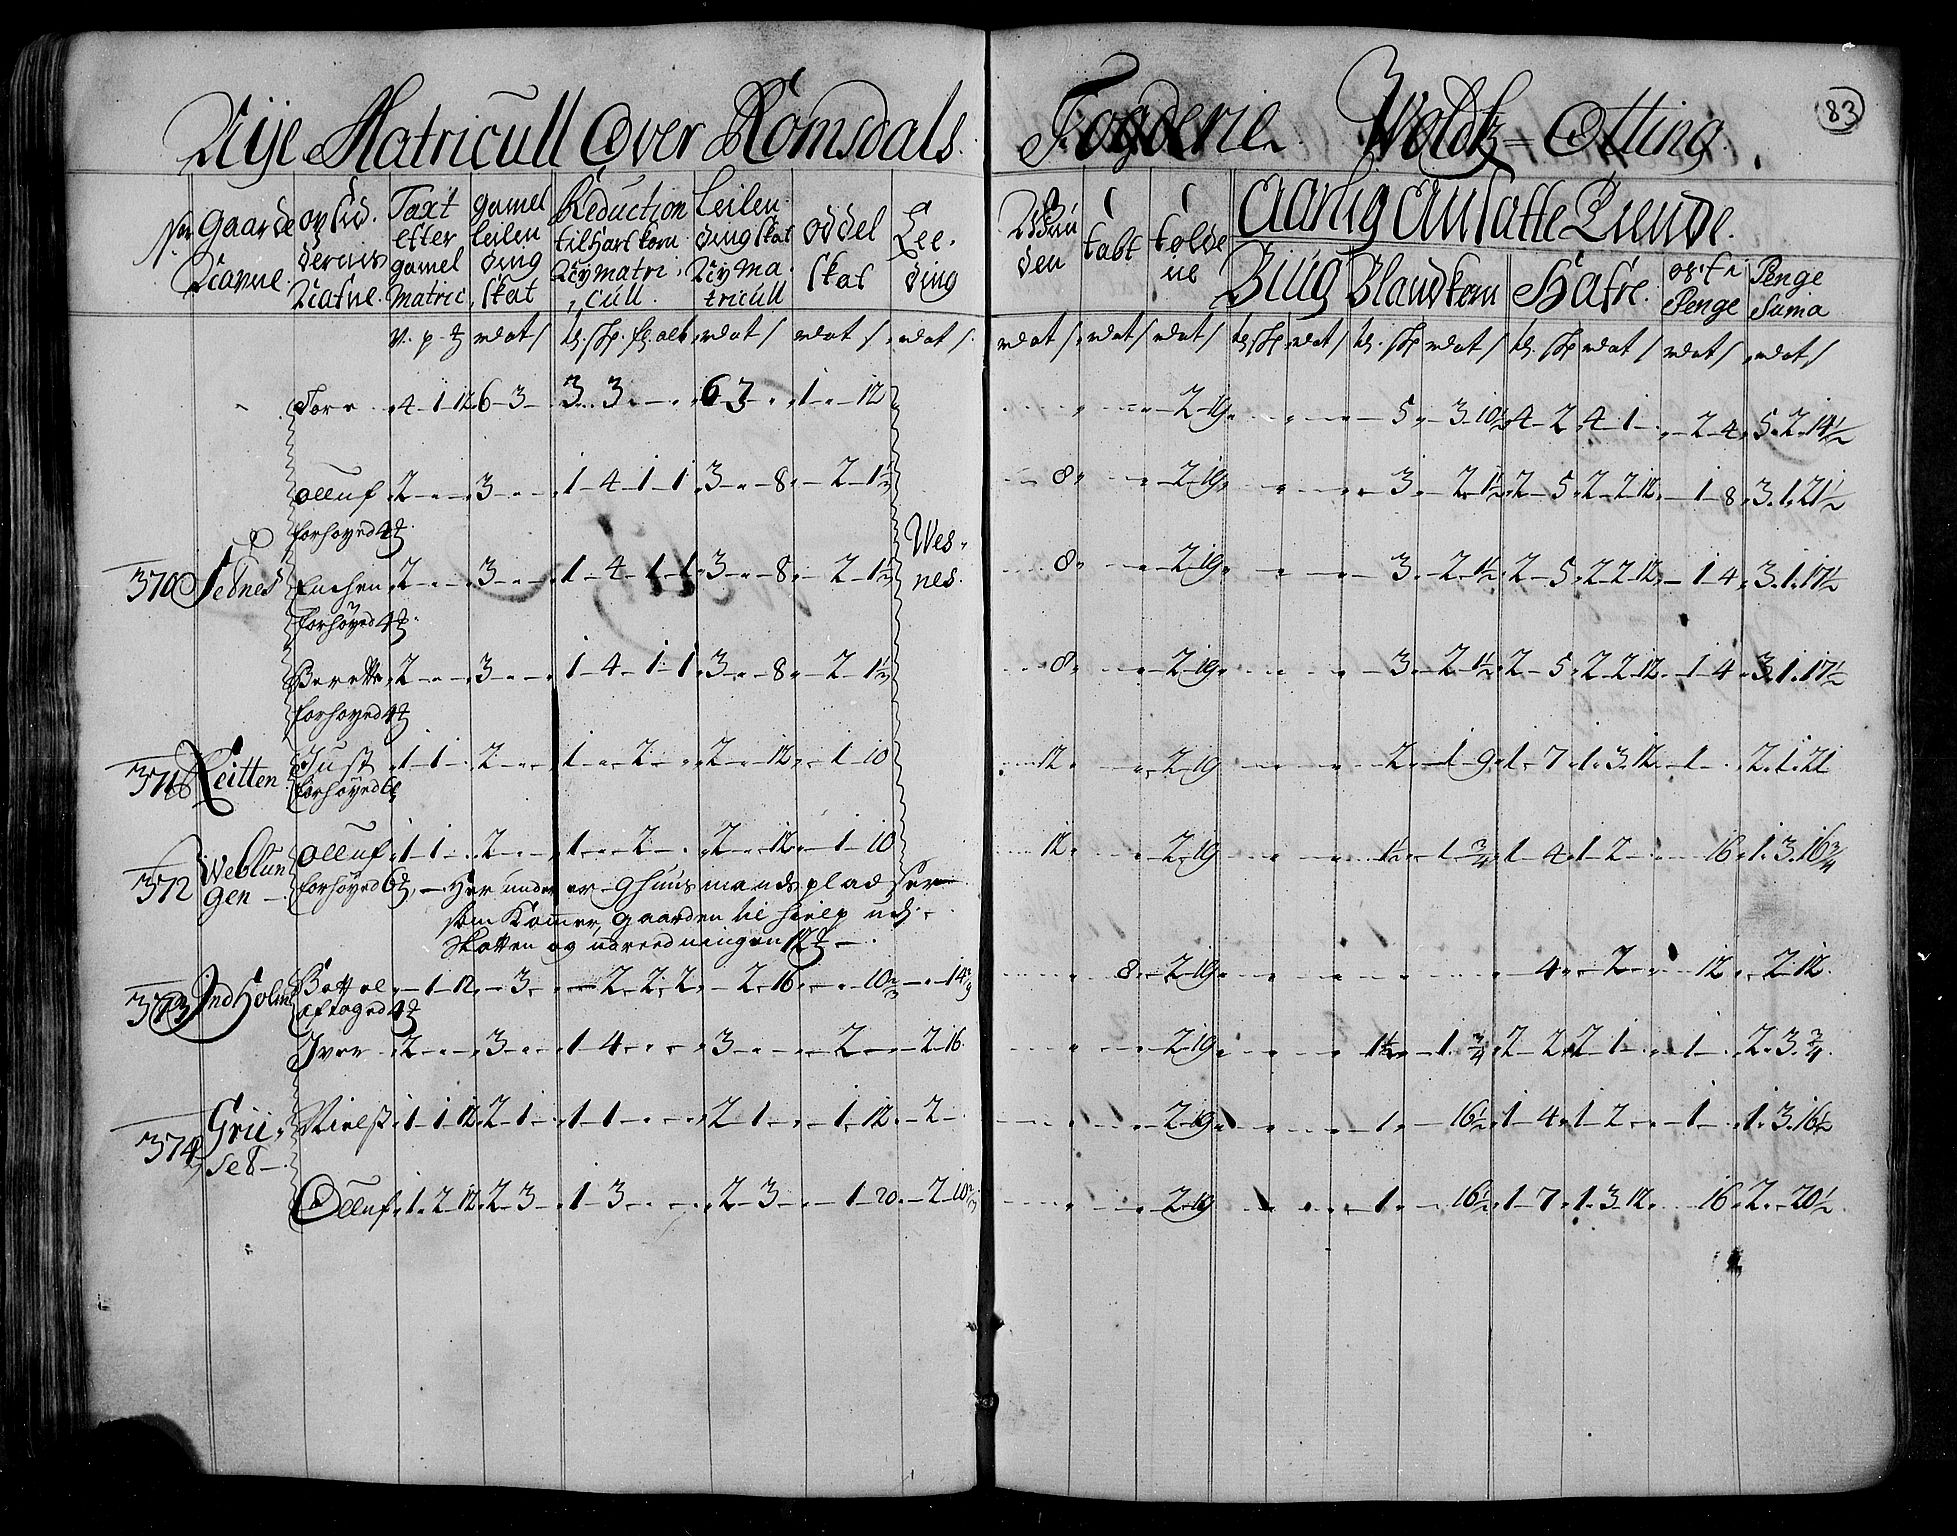 Nye Matricull Over Romsdals Fogderie Woldtz=Otting.
83
No. Gaarde Navne.
opsid. dernis Nafne.
Taxt efter gamel Matric.
gamel leilen ding skat
Reduction til Hart korn Ny matri cull.
Leilen ding skat Ny Ma. tricull
oddel skat
Lee. ding
Wun den
tabt
tolde ne
Aarlig Ansatte Tiende.
Biug
Blandkorn
Hafre.
ost i Penge
Penge Suma
Tore 4-1-12 6-3- 3-3- 6 3 1-12 2-19 5 3-10½ 4-2 4-1 2-4 5-2-14½
olluf 2 3 1-4-1-1 3-8 2-1½ 8 2-19 3 2-1½ 2-5 2-2-12 1-8 3-1-21½
forhøyed 4
Wes-
nes.
370 Setnes Enchen 2 3 1-4-1-1 3-8 2-1½ 8 2-19 3 2-1½ 2-5 2-2-12 1-4 3-1-17½
forhøyed 4
Berette 2 3 1-4-1-1 3-8 2-1½ 8 2-19 3 2-1½ 2-5 2-2-12 1-4 3-1-17½
forhøyed 4
371 Leitten Just 1-1 2 1-2 2-12 1-10 12 2-19 2 1-9 1-7 1-3-12 1 2-1-21
forhøyed 6
372 Weblun gen olluf 1-1 2 1-2 2-12 1-10 12 2-19 1½ 1-¾ 1-4 1-2 16 1-3-16¾
forhøyed 6 Her under er 9 huusmandspladser
som Komer, gaarden til hielp ud i
skatten og udreedningen 12
373 Indholm Bottel 1-12 3 2-2-2 2-16 10⅔ 14 8 2-19 4 2 12 2-12
aftaged 4
Iver 2 3 1-4 3 2 2-16 2-19 1½ 1-¾ 2-2 2-1 1 2-3-¾
374 Grii- set Nielss 1-1-12 2-1 1-1 2-1 1-12 2 2-19 1 16½ 1-4 1-2 1 1-3-16½
Olluf 1-2-12 2-3 1-3 2-3 1-20 2-10⅔ 2-19 1 16½ 1-7 1-3-12 16 2-20½